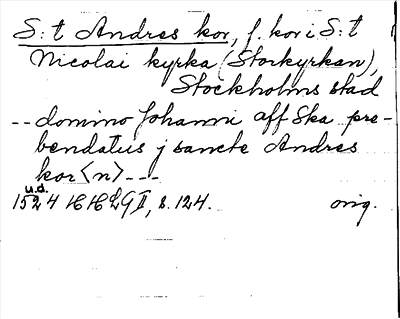 S:t Andres kor, f. kor i S:t
Nicolai kyrka (Storkyrkan),
Stockholms stad
-- domino Johanni aff Ska pre-
bendatus j sancte Andres
kor<n> ---
u.d.
1524 HH Lg II, s. 124. orig.